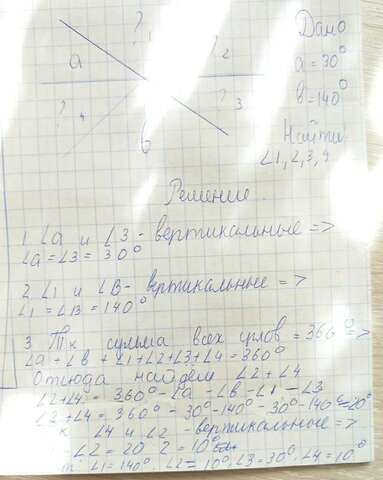 Дано
a = 30°
в = 140°
Найти
∠1, 2, 3, 4
? 1
a
? 2
? 4
? 3
в
Решение
1 ∠a и ∠3 - вертикальные =>
∠a = ∠3 = 30°
2 ∠1 и ∠B - вертикальные =>
∠1 = ∠B = 140°
3 Тк сумма всех углов = 360° =>
∠a + ∠B + ∠1 + ∠2 + ∠3 + ∠4 = 360°
Отсюда найдем ∠2 + ∠4
∠2 + ∠4 = 360° - ∠a - ∠B - ∠1 - ∠3
∠2 + ∠4 = 360° - 30° - 140° - 30° - 140° = 20°
к ∠4 и ∠2 - вертикальные =>
∠2 = 20 2 = 10°
∠1 = 140°, ∠2 = 10°, ∠3 = 30°, ∠4 = 10°